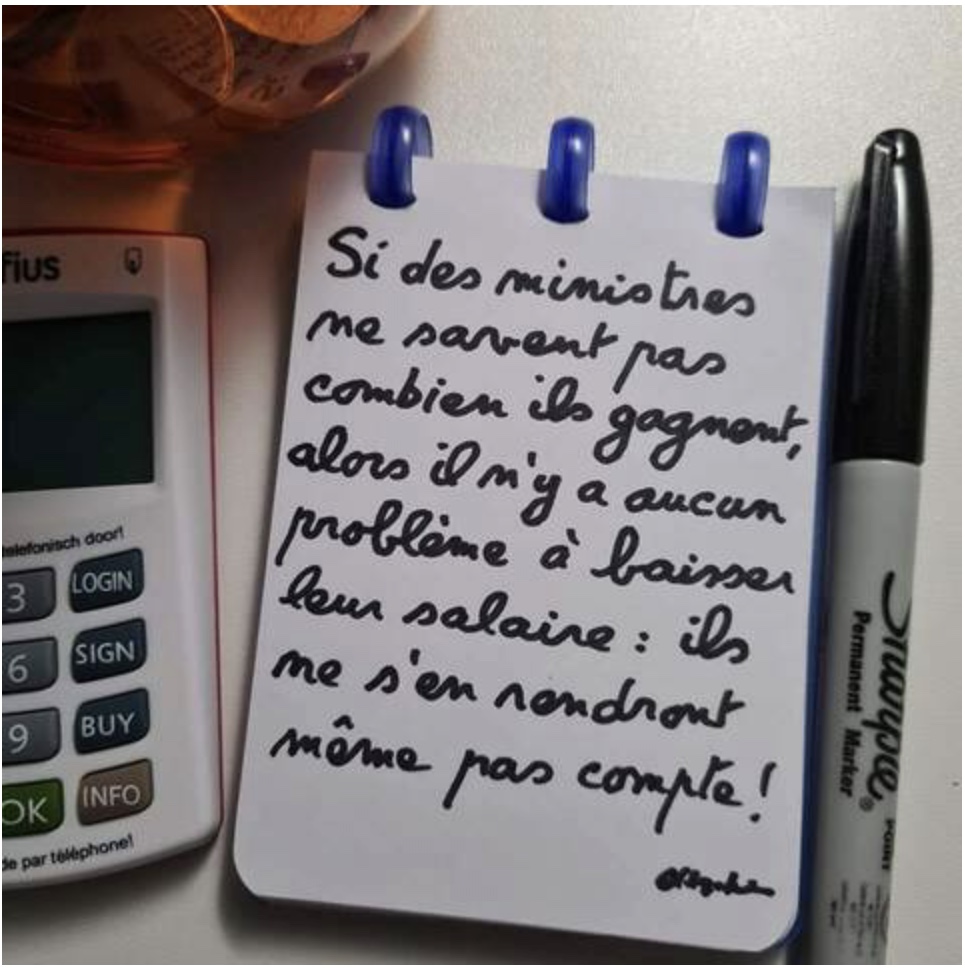 fius
telefonisch door!
3 LOGIN
6 SIGN
9 BUY
OK INFO
de par téléphone!
Si des ministres
ne savent pas
combien ils gagnent,
alors il n'y a aucun
problème à baisser
leur salaire : ils
ne s'en rendront
même pas compte !
Sharpie®
Permanent Marker
POINT